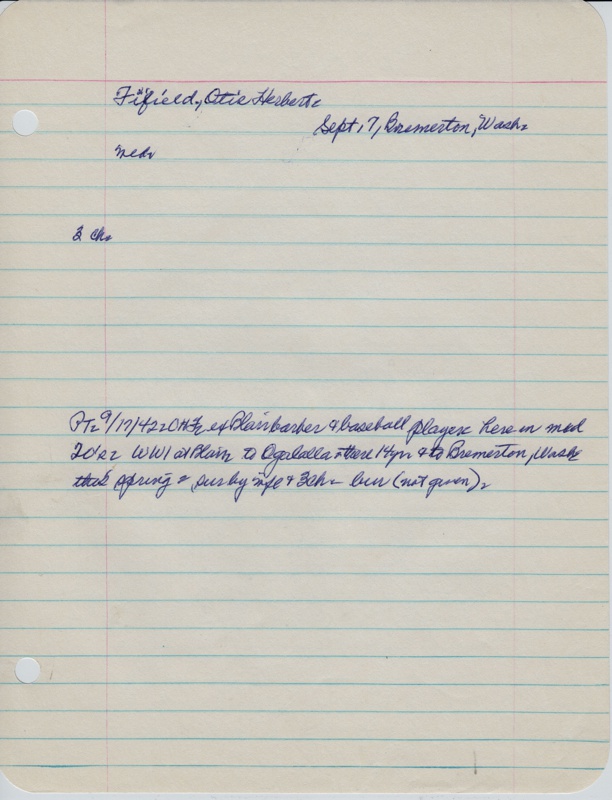 Fifield, Otis Herbert.
Sept 17, Bremerton, Wash.
med.
3 ch.
PT. 9/17/42. OHF. ex Blair barber & baseball player. here in mid
20's. WW1 at Blair to Ogalalla there 14yr & to Bremerton, Wash
this spring. sur by wfe & 3ch. bur (not given).